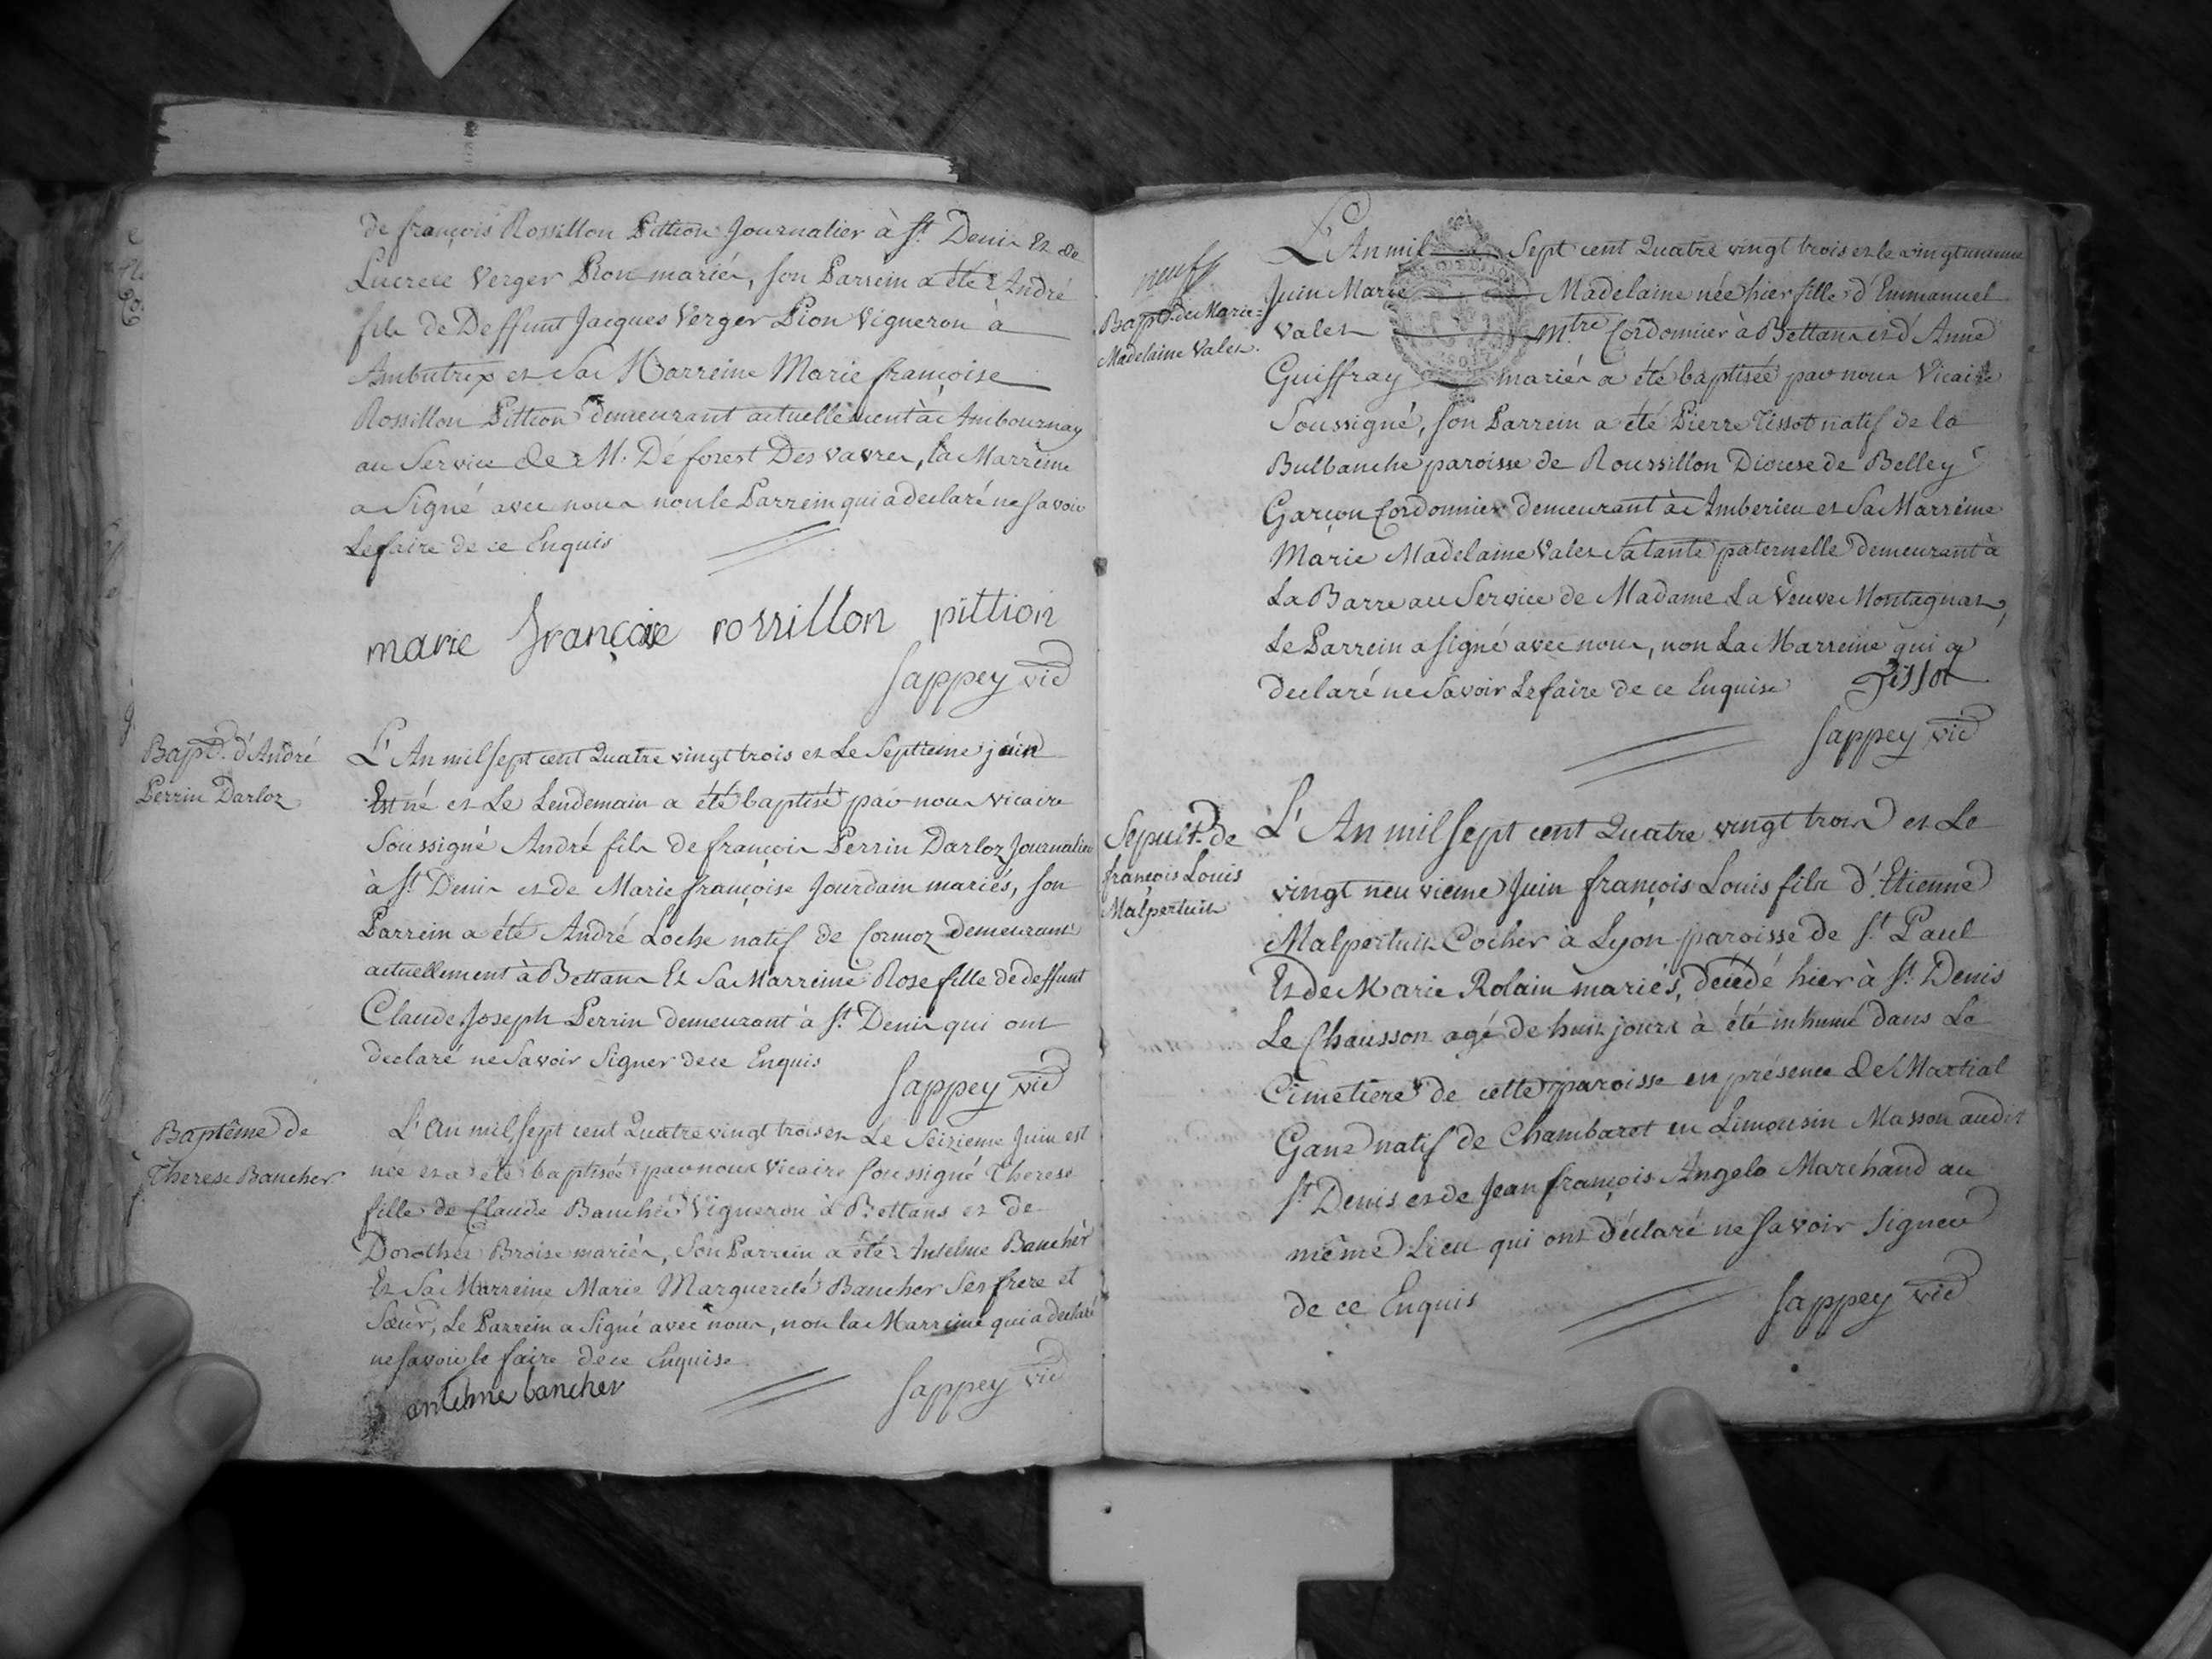 de françois Rossillon Pittion Journalier à St. Denis Et de
Lucrece Verger Pion mariés, son Parrein a été André
fils de Deffunt Jacques Verger Pion Vigneron à
Ambutrix et Sa Marreine Marie françoise
Rossillon Pittion demeurant actuellement à Ambournay
au Service de M. Déforest Des vavres, la Marreine
a Signé avec nous non le Parrein qui a declaré ne Savoir
Le faire de ce Enquis
marie françoise rossillon pittion
Sappey vic
Bapt. d'André
Perrin Darloz
L'An mil sept cent Quatre vingt trois et Le Septieme juin
Est né et Le Lendemain a été baptisé par nous vicaire
Soussigné André fils de françois Perrin Darloz Journalier
à St. Denis et de Marie françoise Jourdain mariés, son
Parrein a été André Loche natif de Cormoz demeurant
actuellement à Bettans Et Sa Marreine Rose fille de deffunt
Claude Joseph Perrin demeurant à St. Denis qui ont
declaré ne Savoir Signer de ce Enquis
Sappey vic
Baptême de
Therese Bancher
L'An mil sept cent Quatre vingt trois et Le Seizieme Juin est
née et a été baptisée par nous vicaire Soussigné Therese
fille de Claude Bancher Vigneron à Bettans et de
Dorothée Broise mariés, Son Parrein a été Anselme Bancher
Et Sa Marreine Marie Marguerite Bancher Ses frere et
Sœur, Le Parrein a Signé avec nous, non la Marreine qui a declaré
ne Savoir le faire de ce Enquise
antelme bancher
Sappey vic
neuf
Bapt. de Marie=
Madelaine Valet.
L'An mil Sept cent Quatre vingt trois et le vingtunieme
Juin Marie Madelaine née hier fille d'Emmanuel
Valet Mtre Cordonnier à Bettans et d'Anne
Guiffray mariés a été baptisée par nous Vicaire
Soussigné, son Parrein a été Pierre Tissot natif de la
Bulbanche paroisse de Roussillon Diocese de Belley
Garçon Cordonnier demeurant à Amberieu et Sa Marreine
Marie Madelaine Valet Sa tante paternelle demeurant à
La Barre au Service de Madame La Veuve Montagnat,
Le Parrein a signé avec nous, non La Marreine qui a
declaré ne Savoir Le faire de ce Enquise
Tissot
Sappey vic
Sepult. de
françois Louis
Malpertuit
L'An mil Sept cent Quatre vingt trois et Le
vingt neuvieme Juin françois Louis fils d'Etienne
Malpertuit Cocher à Lyon paroisse de St. Paul
Et de Marie Rolain mariés, décédé hier à St. Denis
Le Chausson agé de huit jours à été inhumé dans Le
Cimetiere de cette paroisse en présence de Martial
Gane natif de Chambaret en Limousin Masson audit
St. Denis et de Jean françois Angelo Marchand au
même Lieu qui ont déclaré ne Savoir Signer
de ce Enquis
Sappey vic